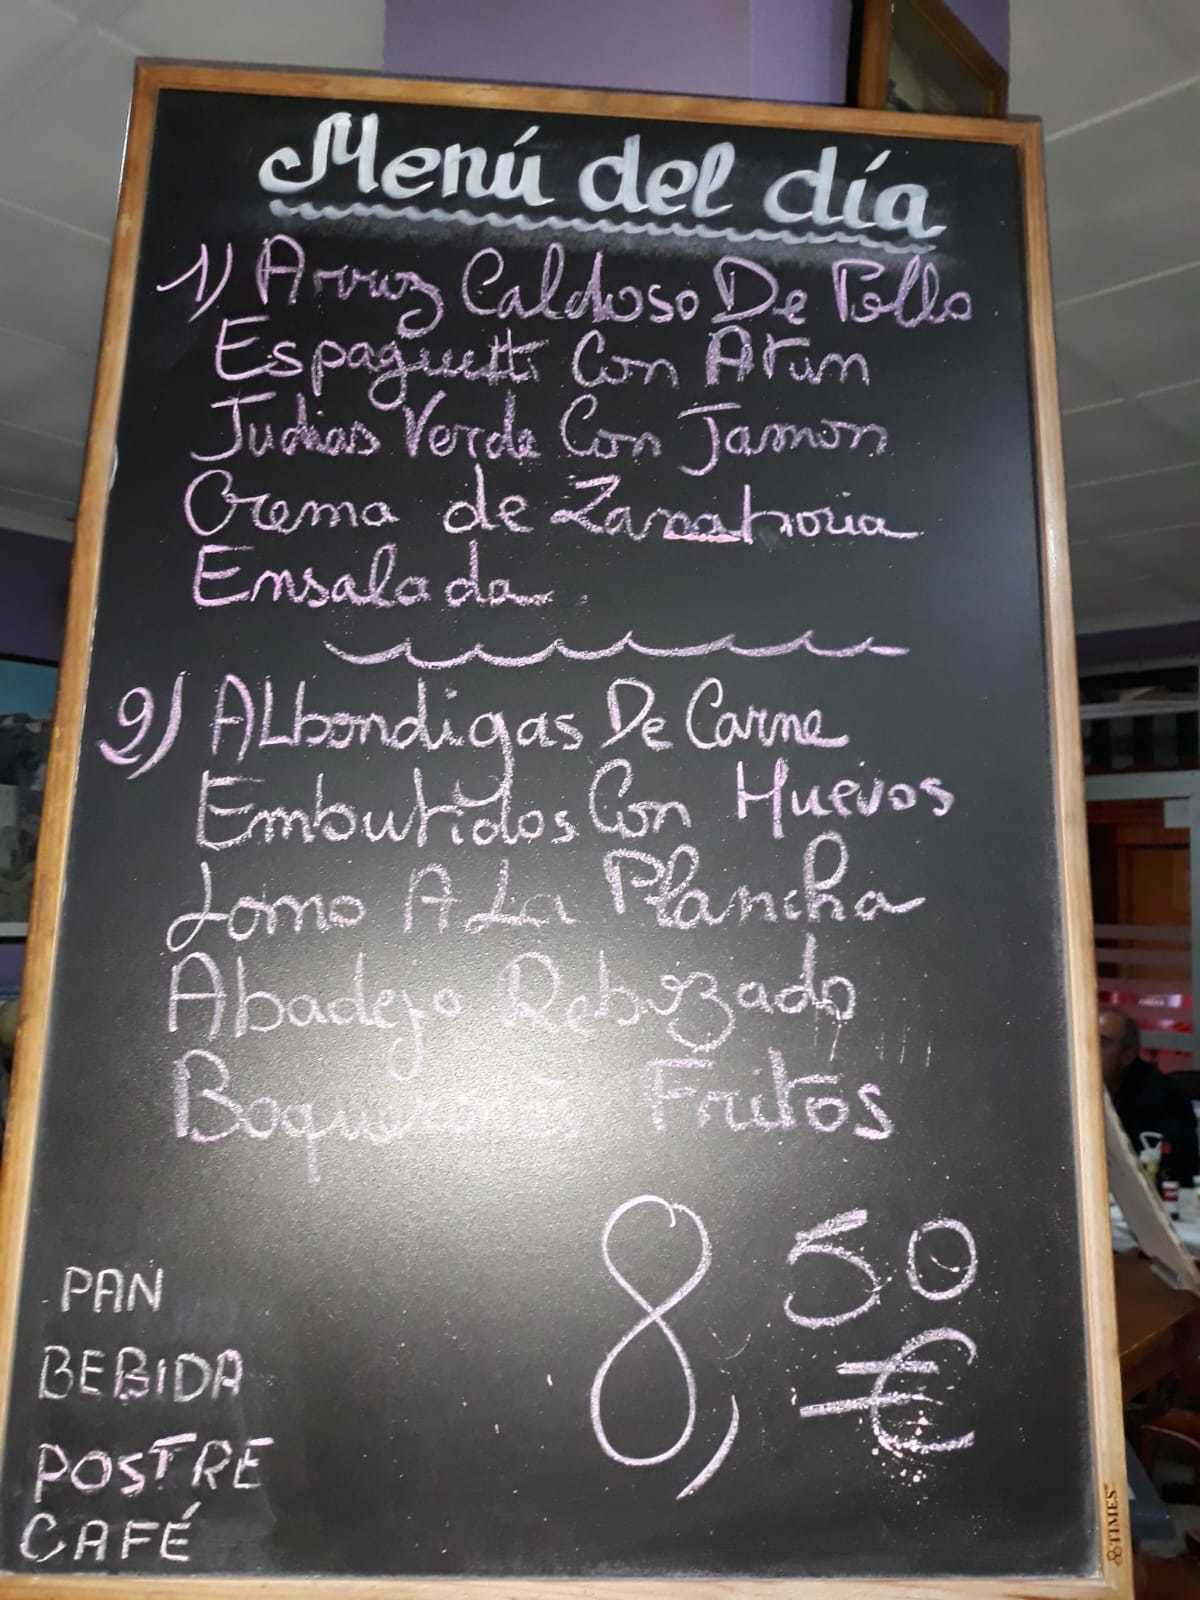 Menú del día
1) Arroz Caldoso De Pollo
Espaguetti Con Atun
Judias Verde Con Jamon
Crema de Zanahoria
Ensalada.
2) ALbondigas De Carne
Embutidos Con Huevos
Lomo A La Plancha
Abadejo Rebozado
Boquerones Fritos
8,50
€
PAN
BEBIDA
POSTRE
CAFÉ
TIMES